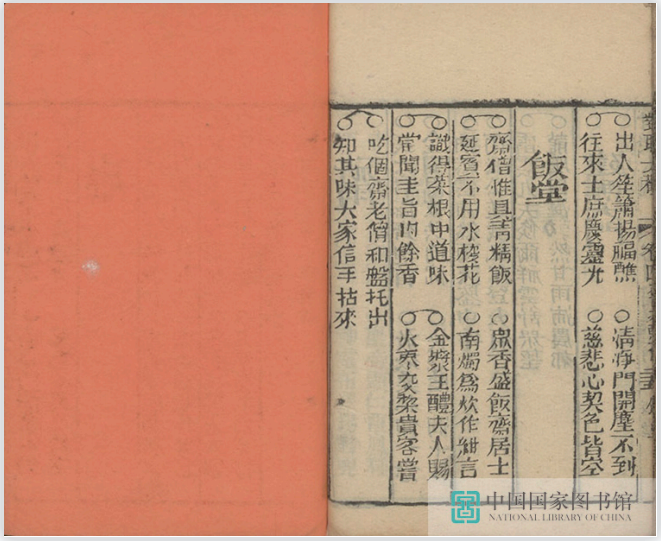 ○出人笙簫揚福醮 ○清淨門開塵不到
○往來士庶慶靈光 ○慈悲心契色皆空
飯堂
○齋僧惟具青精飯 ○眾香盛飯齋居士
○延賓不用水棧花 ○南燭爲炊作紺言
○識得菜根中道味 ○金漿王醴夫人賜
○嘗聞圭旨內餘香 ○火棗交梨貴客嘗
○吃個齋老僧和盤托出
○知其味大家信手拈來
中国国家图书馆
NATIONAL LIBRARY OF CHINA